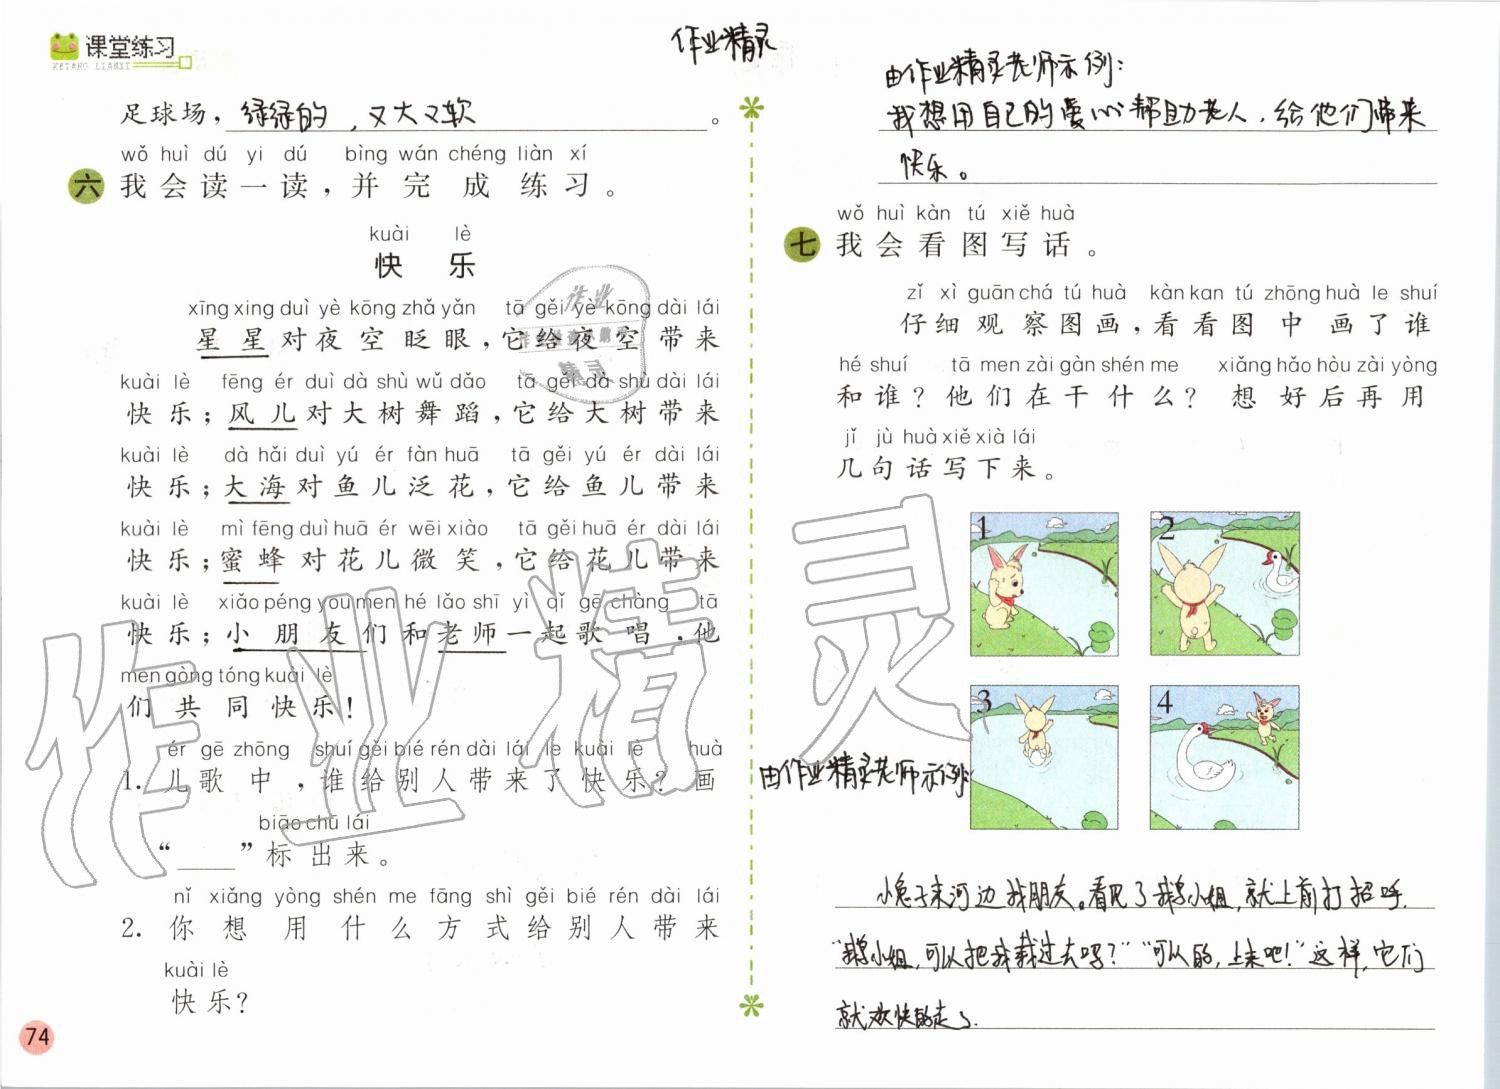 课堂练习
KETANG LIANXI
作业精灵
足球场，绿绿的，又大又软。
wǒ huì dú yi dú bìng wán chéng liàn xí
六 我会读一读，并完成练习。
kuài lè
快乐
xīng xing duì yè kōng zhǎ yǎn tā gěi yè kōng dài lái
星星对夜空眨眼，它给夜空带来
kuài lè fēng ér duì dà shù wǔ dǎo tā gěi dà shù dài lái
快乐；风儿对大树舞蹈，它给大树带来
kuài lè dà hǎi duì yú ér fàn huā tā gěi yú ér dài lái
快乐；大海对鱼儿泛花，它给鱼儿带来
kuài lè mì fēng duì huā ér wēi xiào tā gěi huā ér dài lái
快乐；蜜蜂对花儿微笑，它给花儿带来
kuài lè xiǎo péng you men hé lǎo shī yì qǐ gē chàng tā
快乐；小朋友们和老师一起歌唱，他
men gòng tóng kuài lè
们共同快乐！
ér gē zhōng shuí gěi bié rén dài lái le kuài lè huà
1. 儿歌中，谁给别人带来了快乐？画
biāo chū lái
“____”标出来。
nǐ xiǎng yòng shén me fāng shì gěi bié rén dài lái
2. 你想用什么方式给别人带来
kuài lè
快乐？
74
由作业精灵老师示例：
我想用自己的爱心帮助老人，给他们带来
快乐。
wǒ huì kàn tú xiě huà
七 我会看图写话。
zǐ xì guān chá tú huà kàn kan tú zhōng huà le shuí
仔细观察图画，看看图中画了谁
hé shuí tā men zài gàn shén me xiǎng hǎo hòu zài yòng
和谁？他们在干什么？想好后再用
jǐ jù huà xiě xià lái
几句话写下来。
1
2
3
4
由作业精灵老师示例：
小兔子来河边找朋友。看见了鹅小姐，就上前打招呼.
“鹅小姐，可以把我载过去吗？”“可以的，上来吧！”这样，它们
就欢快的走了.
作业精灵